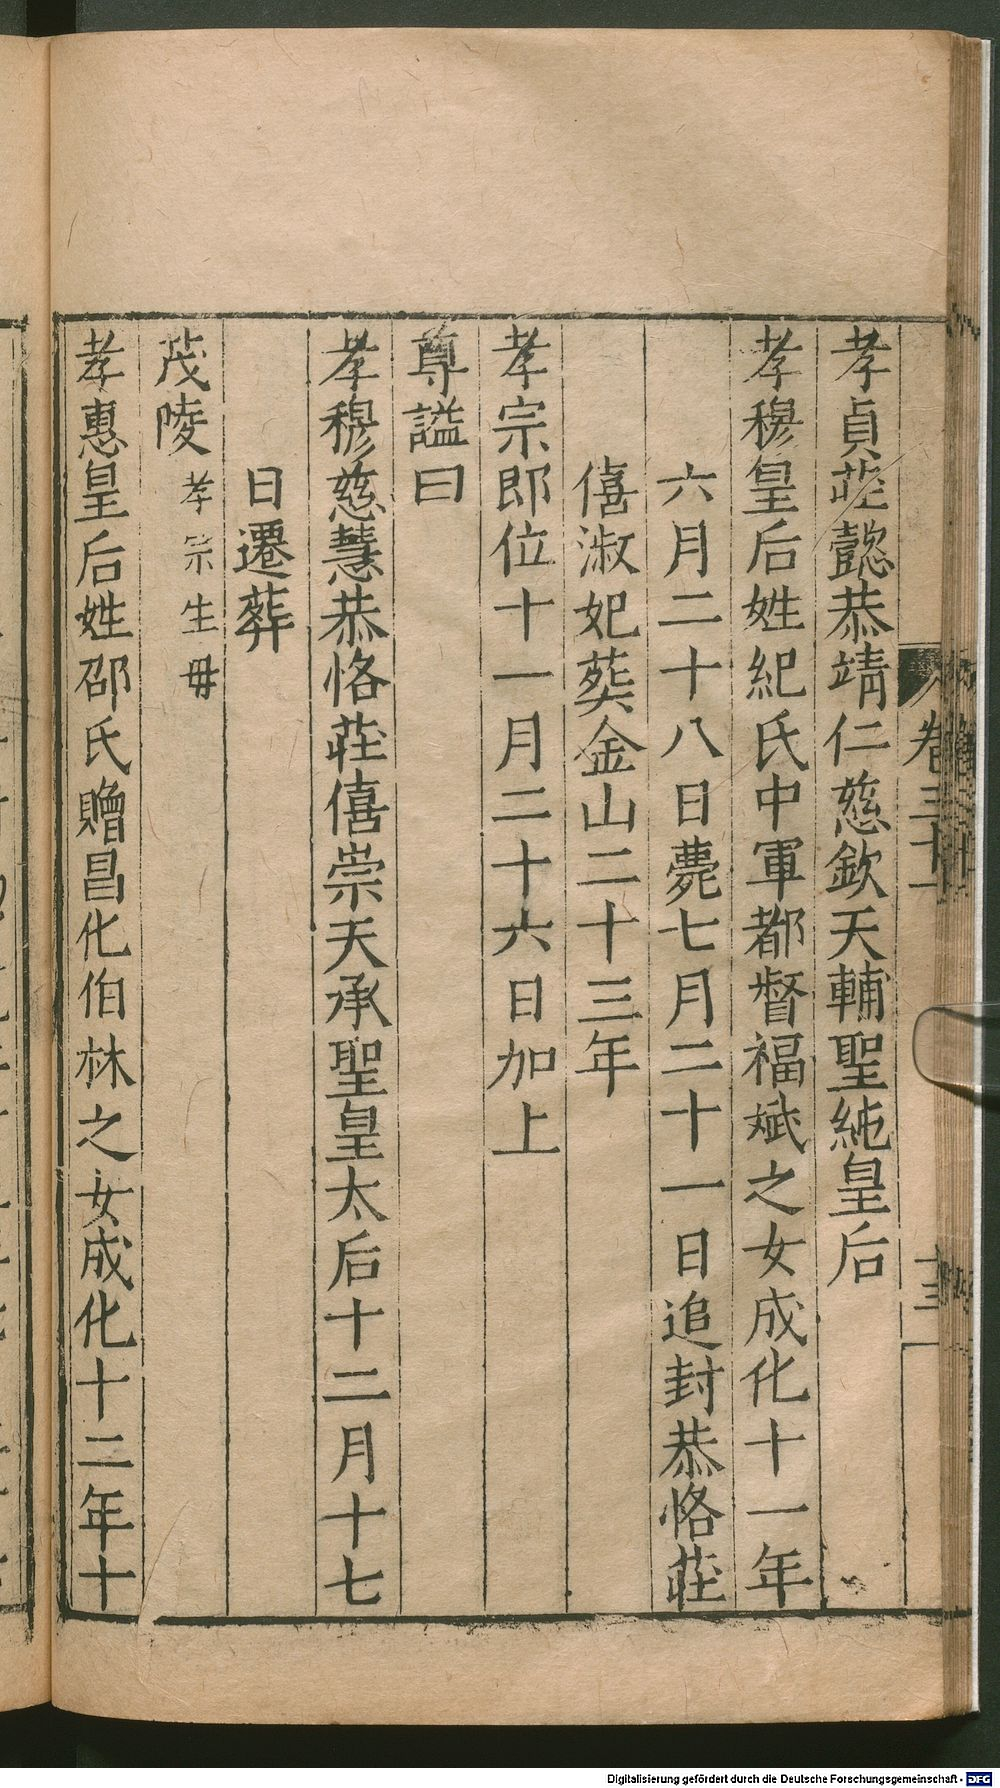 卷三十一
十三
孝貞莊懿恭靖仁慈欽天輔聖純皇后
孝穆皇后姓紀氏中軍都督福斌之女成化十一年
六月二十八日薨七月二十一日追封恭恪莊
僖淑妃葬金山二十三年
孝宗卽位十一月二十六日加上
尊謚曰
孝穆慈慧恭恪莊僖崇天承聖皇太后十二月十七
日遷葬
茂陵孝宗生毋
孝惠皇后姓邵氏贈昌化伯林之女成化十二年十
Digitalisierung gefördert durch die Deutsche Forschungsgemeinschaft - DFG